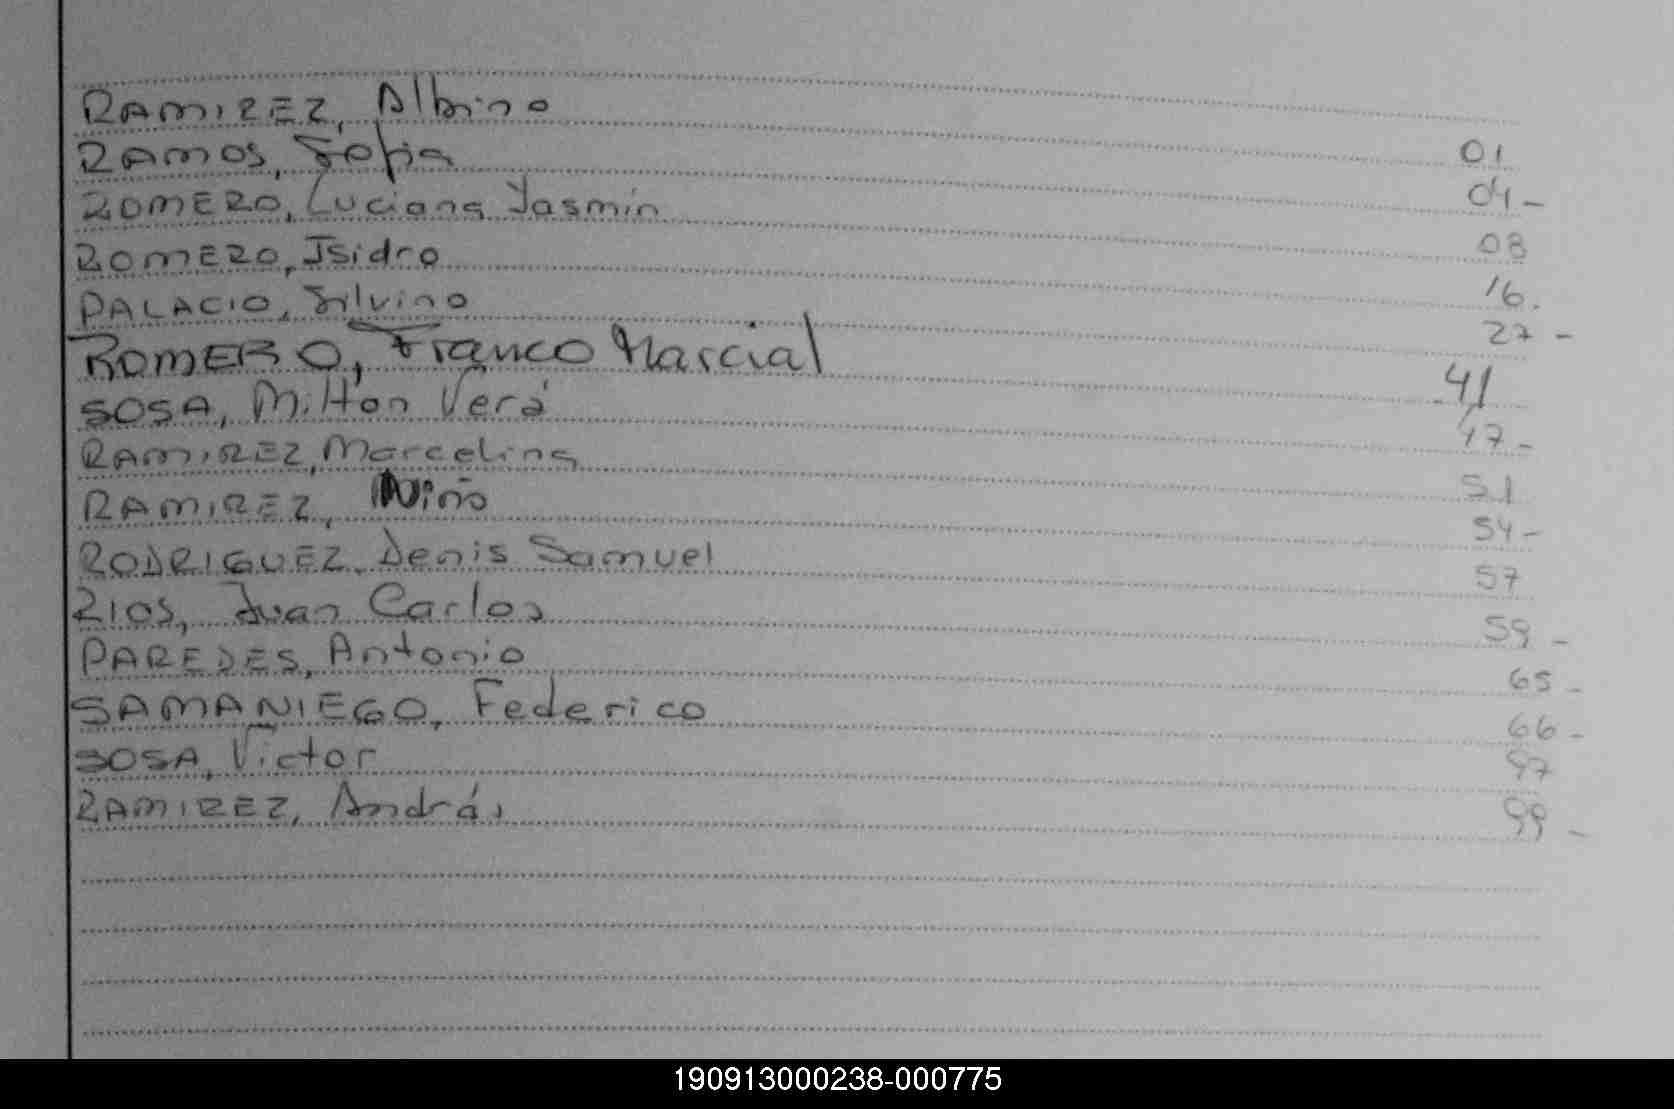 RAMIREZ, Albino 01
RAMOS, Sofia 04-
ROMERO, Luciana Yasmín 08
ROMERO, Isidro 16.
PALACIO, Silvino 27-
ROMERO, Franco Marcial 41
SOSA, Milton Verá 47-
RAMIREZ, Marcelina 51
RAMIREZ, Niño 54-
RODRIGUEZ, Denis Samuel 57
RIOS, Juan Carlos 59-
PAREDES, Antonio 65-
SAMANIEGO, Federico 66-
SOSA, Victor 97
RAMIREZ, András 99-
190913000238-000775